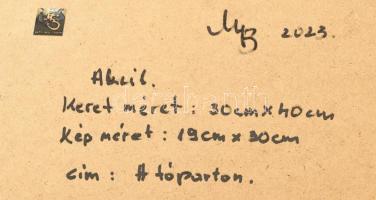 MB 2023.
Akril.
Keret méret : 30cm x 40cm
Kép méret : 19cm x 30cm
cím : A tóparton.